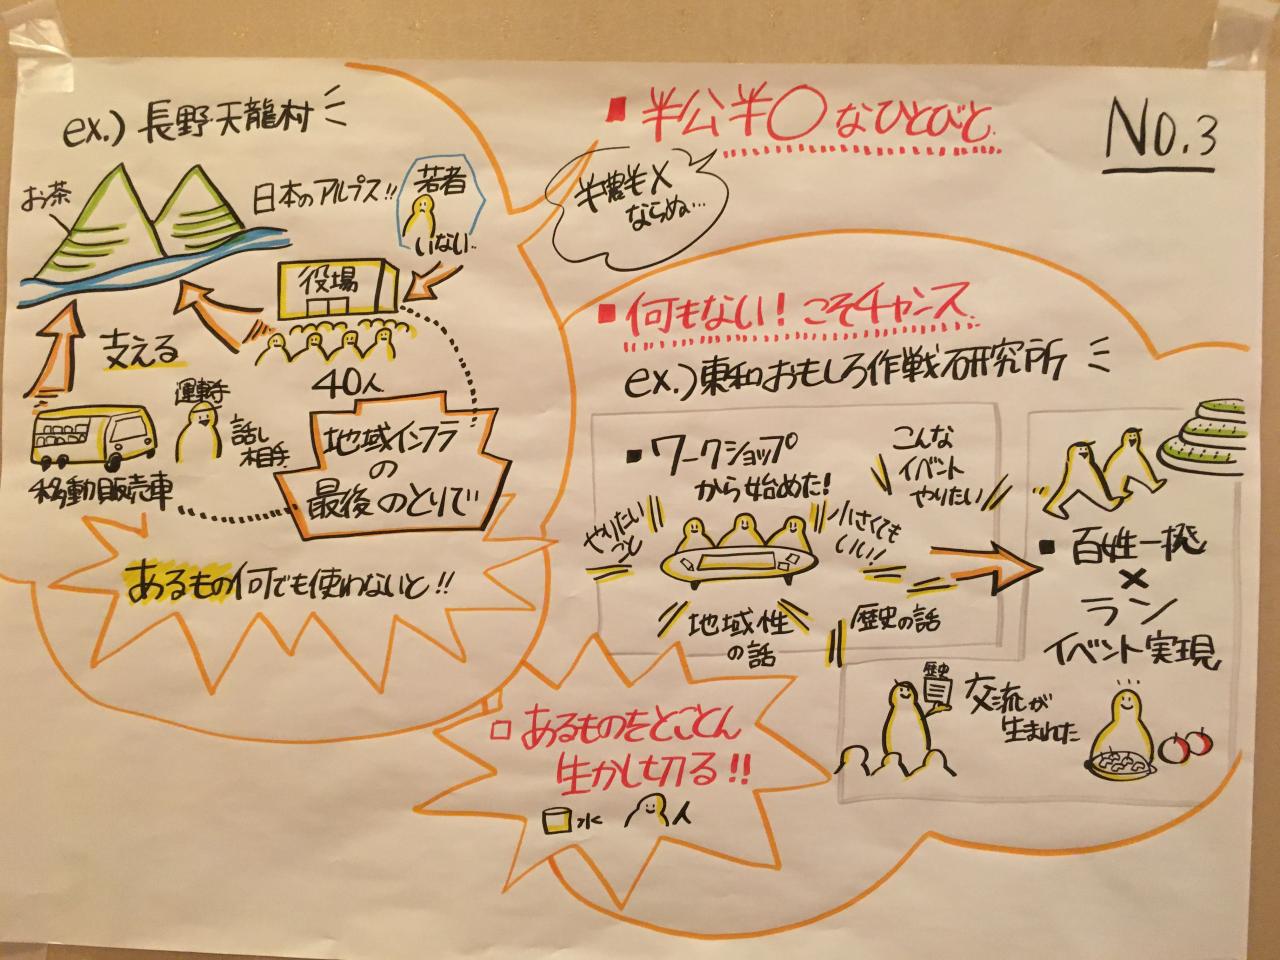 No.3
■ 半公半〇なひとびと
半農半X
ならぬ…
ex.) 長野天龍村
お茶
日本のアルプス!!
若者
いない…
役場
40人
支える
運転手
話し
相手
移動販売車
地域インフラ
の
最後のとりで
あるもの何でも使わないと!!
■ 何もない！こそチャンス
ex.) 東和おもしろ作戦研究所
■ ワークショップ
から始めた!
やりたい
こと
小さくても
いい!
こんな
イベント
やりたい
地域性
の話
歴史の話
■ 百姓一揆
×
ラン
イベント実現
歴史
交流が
生まれた
□ あるものをとことん
生かし切る!!
水
人